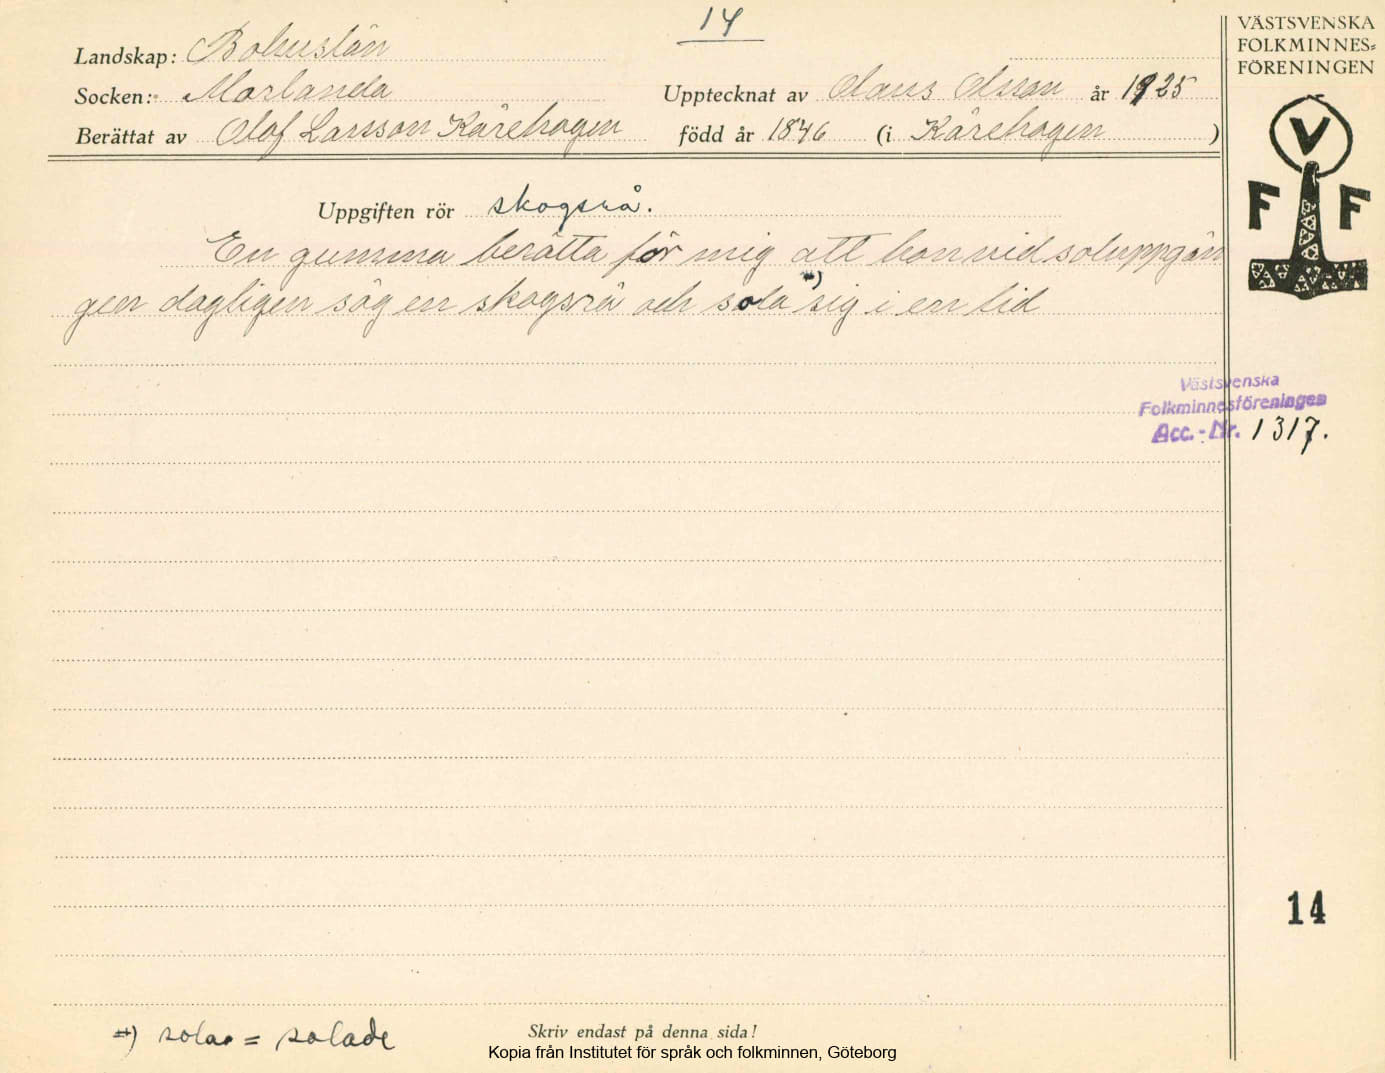 14
VÄSTSVENSKA
FOLKMINNES=
FÖRENINGEN
Landskap: Bohuslän
Socken: Morlanda
Upptecknat av Olaus Olsson år 1925
Berättat av Olof Larsson Kårehogen född år 1846 (i Kårehogen )
V
F F
Uppgiften rör skogsrå.
En gumma berätta för mig att hon vid soluppgån
gen dagligen såg en skogsrå och sola *) sig i en lid
Västsvenska
Folkminnesföreningen
Acc.-Nr. 1317.
14
*) sola = solade
Skriv endast på denna sida!
Kopia från Institutet för språk och folkminnen, Göteborg